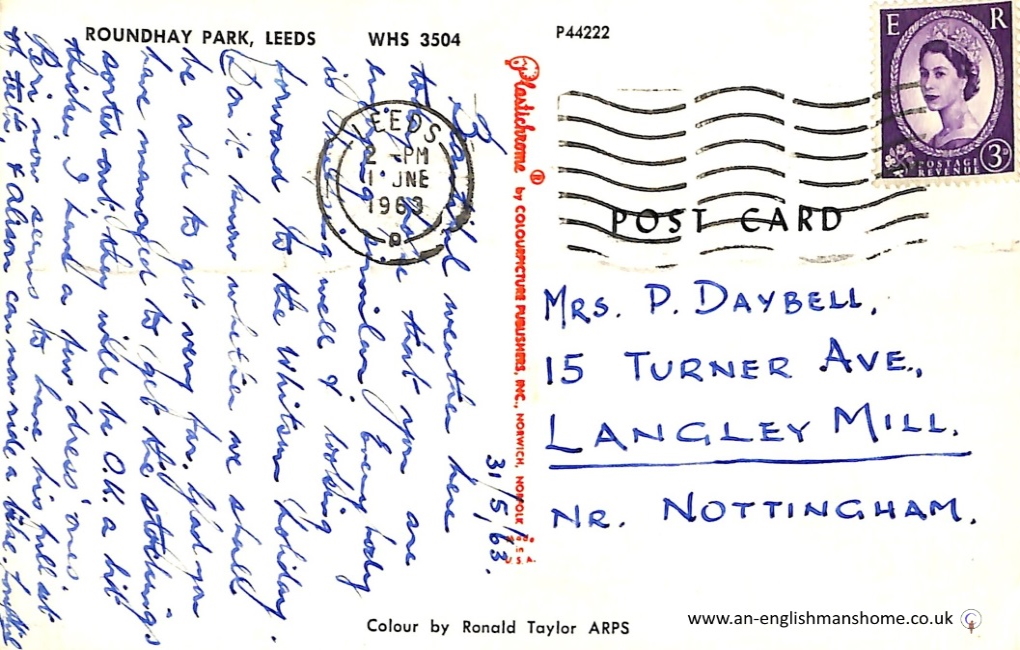 ROUNDHAY PARK, LEEDS WHS 3504
P44222
E R
POSTAGE
REVENUE
3D
LEEDS
2 - PM
1 JNE
1963
POST CARD
31/5/63.
Beautiful weather here
today hope that you are
enjoying similar. Every body
is thriving well & looking
forward to the Whitsun holiday.
Don't know whether we shall
be able to get very far. Glad you
have managed to get the stockings
sorted out, they will be O.K. a bit
thicker I had a few 'dress' ones.
Peri now seems to have his full set
of teeth, & Alison can now ride a bike.
Plastichrome ® by COLOURPICTURE PUBLISHERS, INC., NORWICH, NORFOLK
Made in U.S.A.
MRS. P. DAYBELL,
15 TURNER AVE.,
LANGLEY MILL.
NR. NOTTINGHAM.
Colour by Ronald Taylor ARPS
www.an-englishmanshome.co.uk